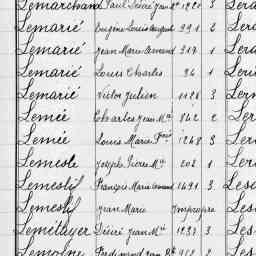 Lemarchand Paul Désiré Jean Mie 1920 3 Lera
Lemarié Eugène Louis August 991 2 Lera
Lemarié Jean Marie Armand 314 1 Lera
Lemarié Louis Charles 96 1 Leri
Lemarié Victor Julien 1128 3 Lern
Lemée Charles Jean Mie 842 2 Ler
Lemée Louis Marie Fois 1248 3 Lero
Lemesle Joseph Pierre Mie 208 1 Ler
Lemeslif François Marie Armand 1491 3 Lesa
Lemeslif Jean Marie Impropre Les
Lemétayer Désiré Jean Mie 1233 3 Les
Lemoine Ferdinand Jean Bte 912 2 Les